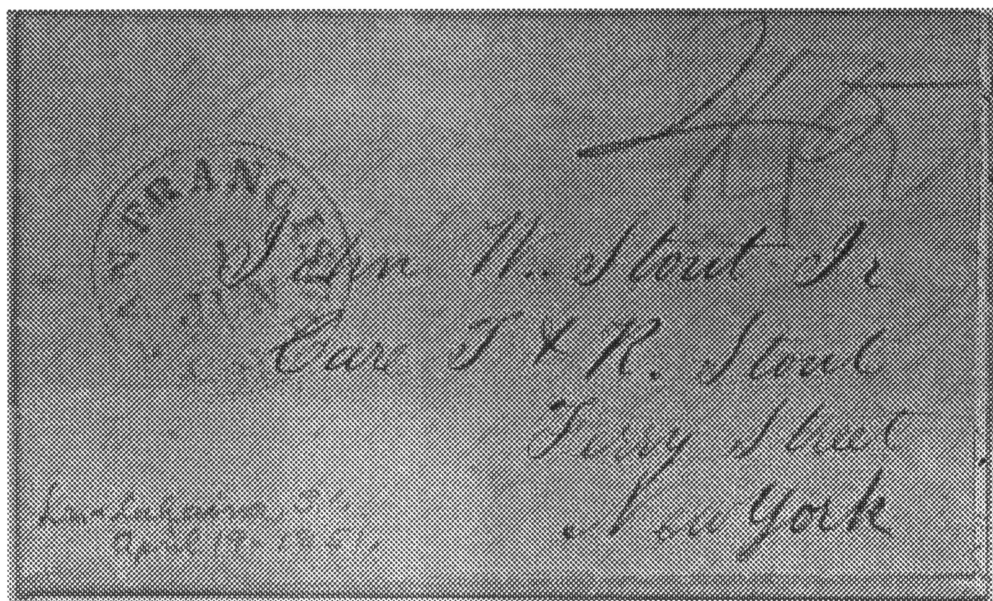 45
JUN
John W. Stout Jr
Care J & R. Stout
Ferry Street
New York
April 19 1851